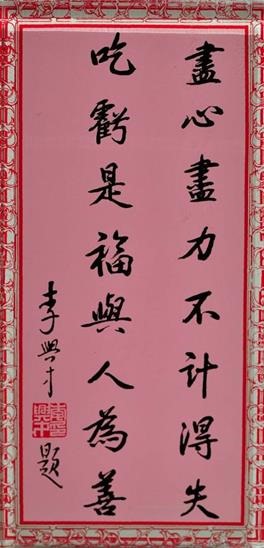 盡心盡力不計得失
吃虧是福與人為善
李興才題